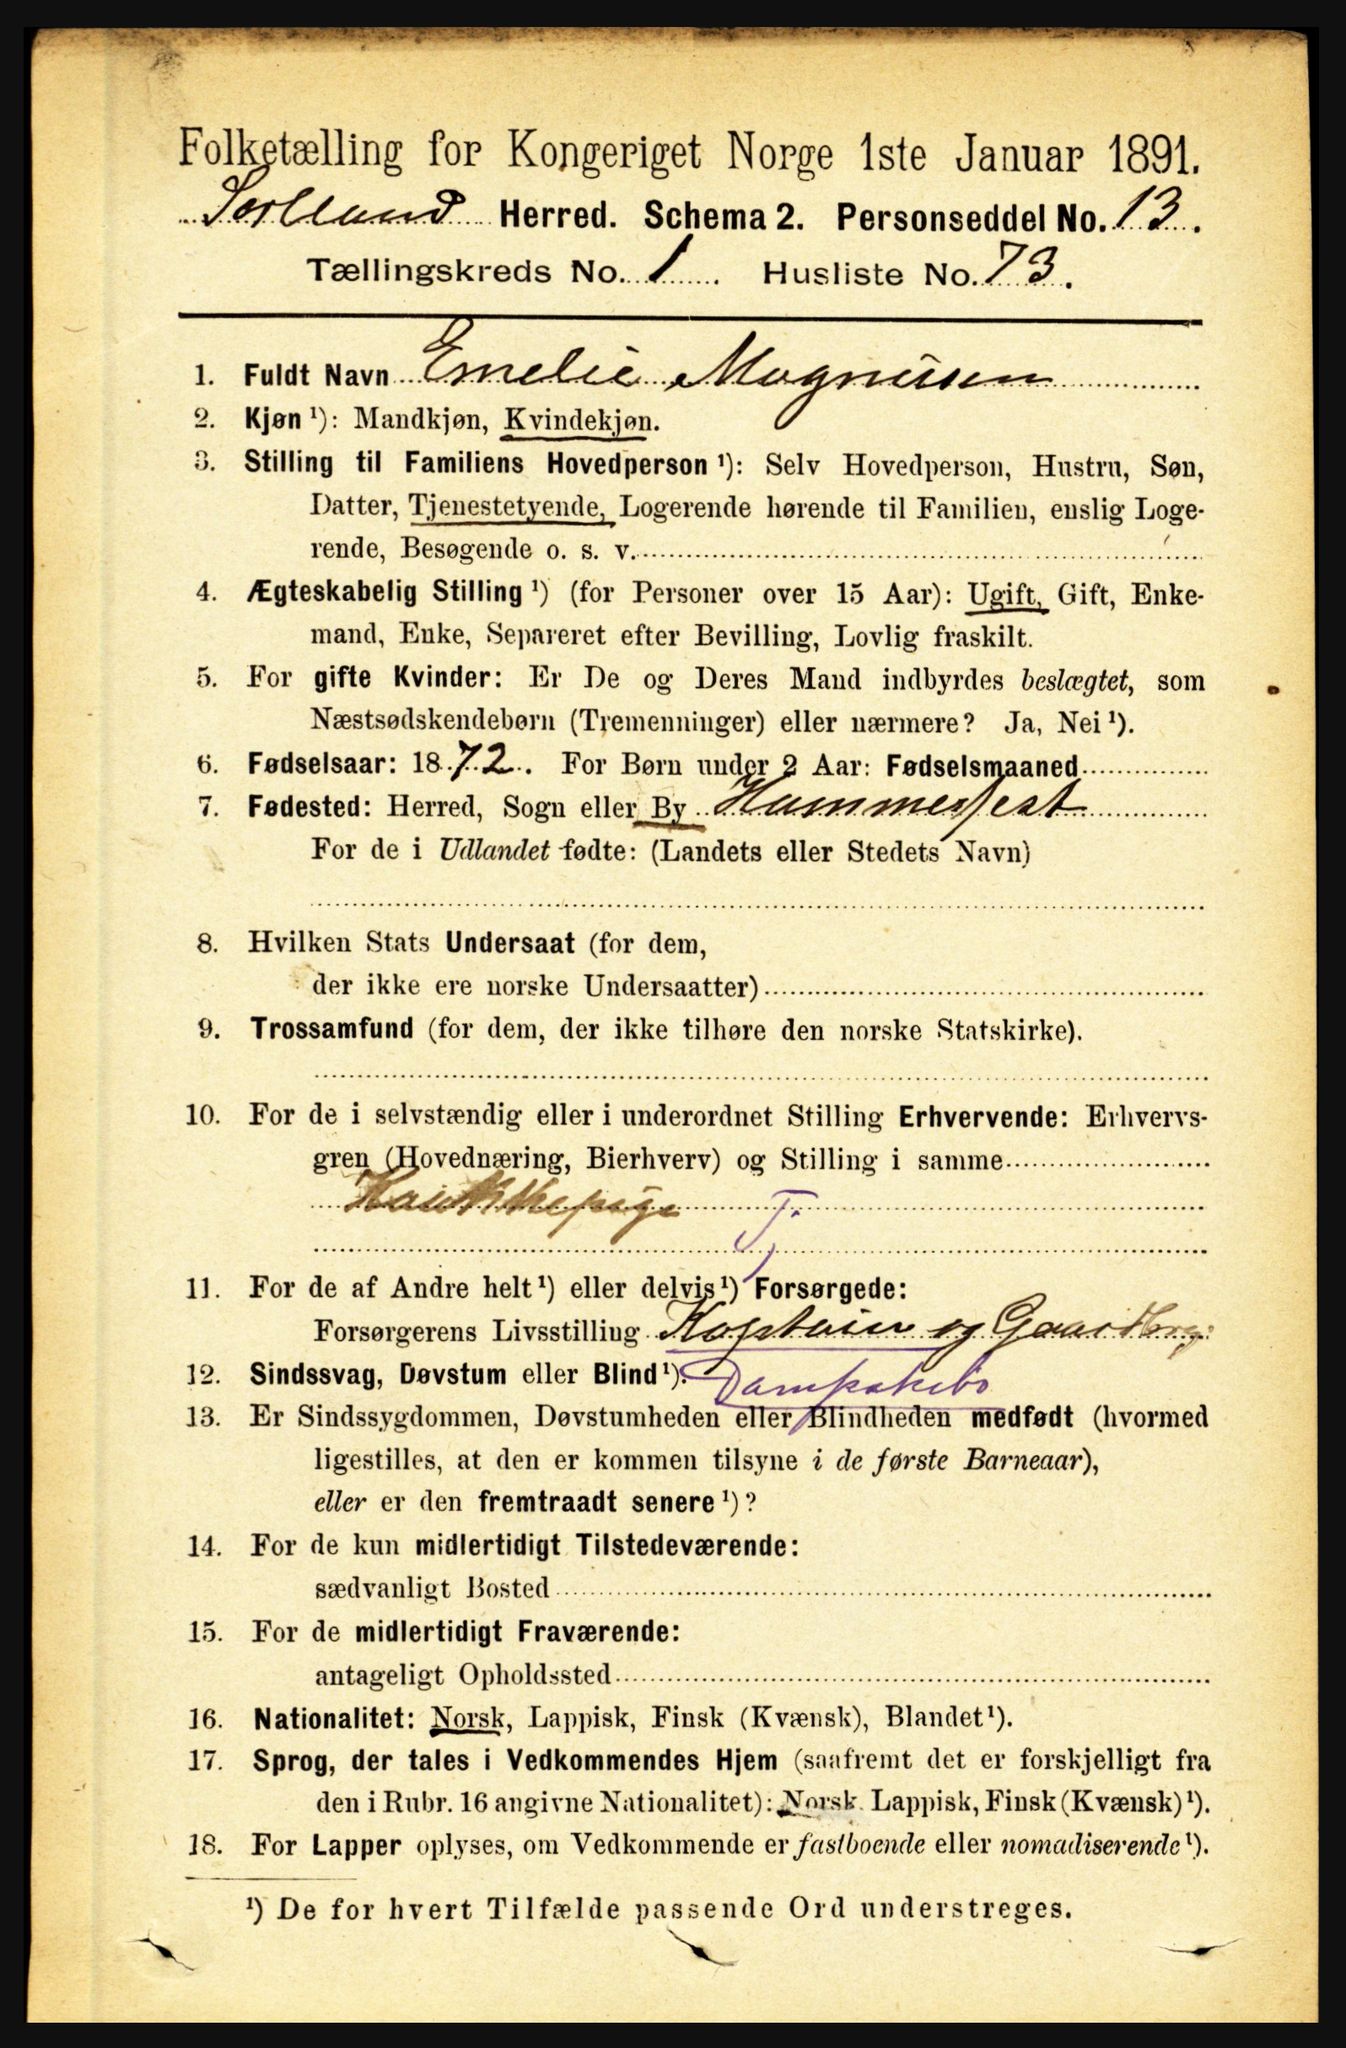 Folketælling for Kongeriget Norge 1ste Januar 1891.
Herred. Schema 2. Personseddel No. 13.
Tællingskreds No. 1. Husliste No. 73.
1. Fuldt Navn Emelie Magnusen
2. Kjøn ¹): Mandkjøn, Kvindekjøn.
3. Stilling til Familiens Hovedperson ¹): Selv Hovedperson, Hustru, Søn,
Datter, Tjenestetyende, Logerende hørende til Familien, enslig Loge-
rende, Besøgende o. s. v.
4. Ægteskabelig Stilling ¹) (for Personer over 15 Aar): Ugift, Gift, Enke-
mand, Enke, Separeret efter Bevilling, Lovlig fraskilt.
5. For gifte Kvinder: Er De og Deres Mand indbyrdes beslægtet, som
Næstsødskendebørn (Tremenninger) eller nærmere? Ja, Nei ¹).
6. Fødselsaar: 1872. For Børn under 2 Aar: Fødselsmaaned
7. Fødested: Herred, Sogn eller By Hammerfest
For de i Udlandet fødte: (Landets eller Stedets Navn)
8. Hvilken Stats Undersaat (for dem,
der ikke ere norske Undersaatter)
9. Trossamfund (for dem, der ikke tilhøre den norske Statskirke).
10. For de i selvstændig eller i underordnet Stilling Erhvervende: Erhvervs-
gren (Hovednæring, Bierhverv) og Stilling i samme
T.
11. For de af Andre helt ¹) eller delvis ¹) Forsørgede:
Forsørgerens Livsstilling Kaptain og
12. Sindssvag, Døvstum eller Blind ¹). Dampskibs
13. Er Sindssygdommen, Døvstumheden eller Blindheden medfødt (hvormed
ligestilles, at den er kommen tilsyne i de første Barneaar),
eller er den fremtraadt senere ¹)?
14. For de kun midlertidigt Tilstedeværende:
sædvanligt Bosted
15. For de midlertidigt Fraværende:
antageligt Opholdssted
16. Nationalitet: Norsk, Lappisk, Finsk (Kvænsk), Blandet ¹).
17. Sprog, der tales i Vedkommendes Hjem (saafremt det er forskjelligt fra
den i Rubr. 16 angivne Nationalitet): Norsk. Lappisk, Finsk (Kvænsk) ¹).
18. For Lapper oplyses, om Vedkommende er fastboende eller nomadiserende ¹).
¹) De for hvert Tilfælde passende Ord understreges.